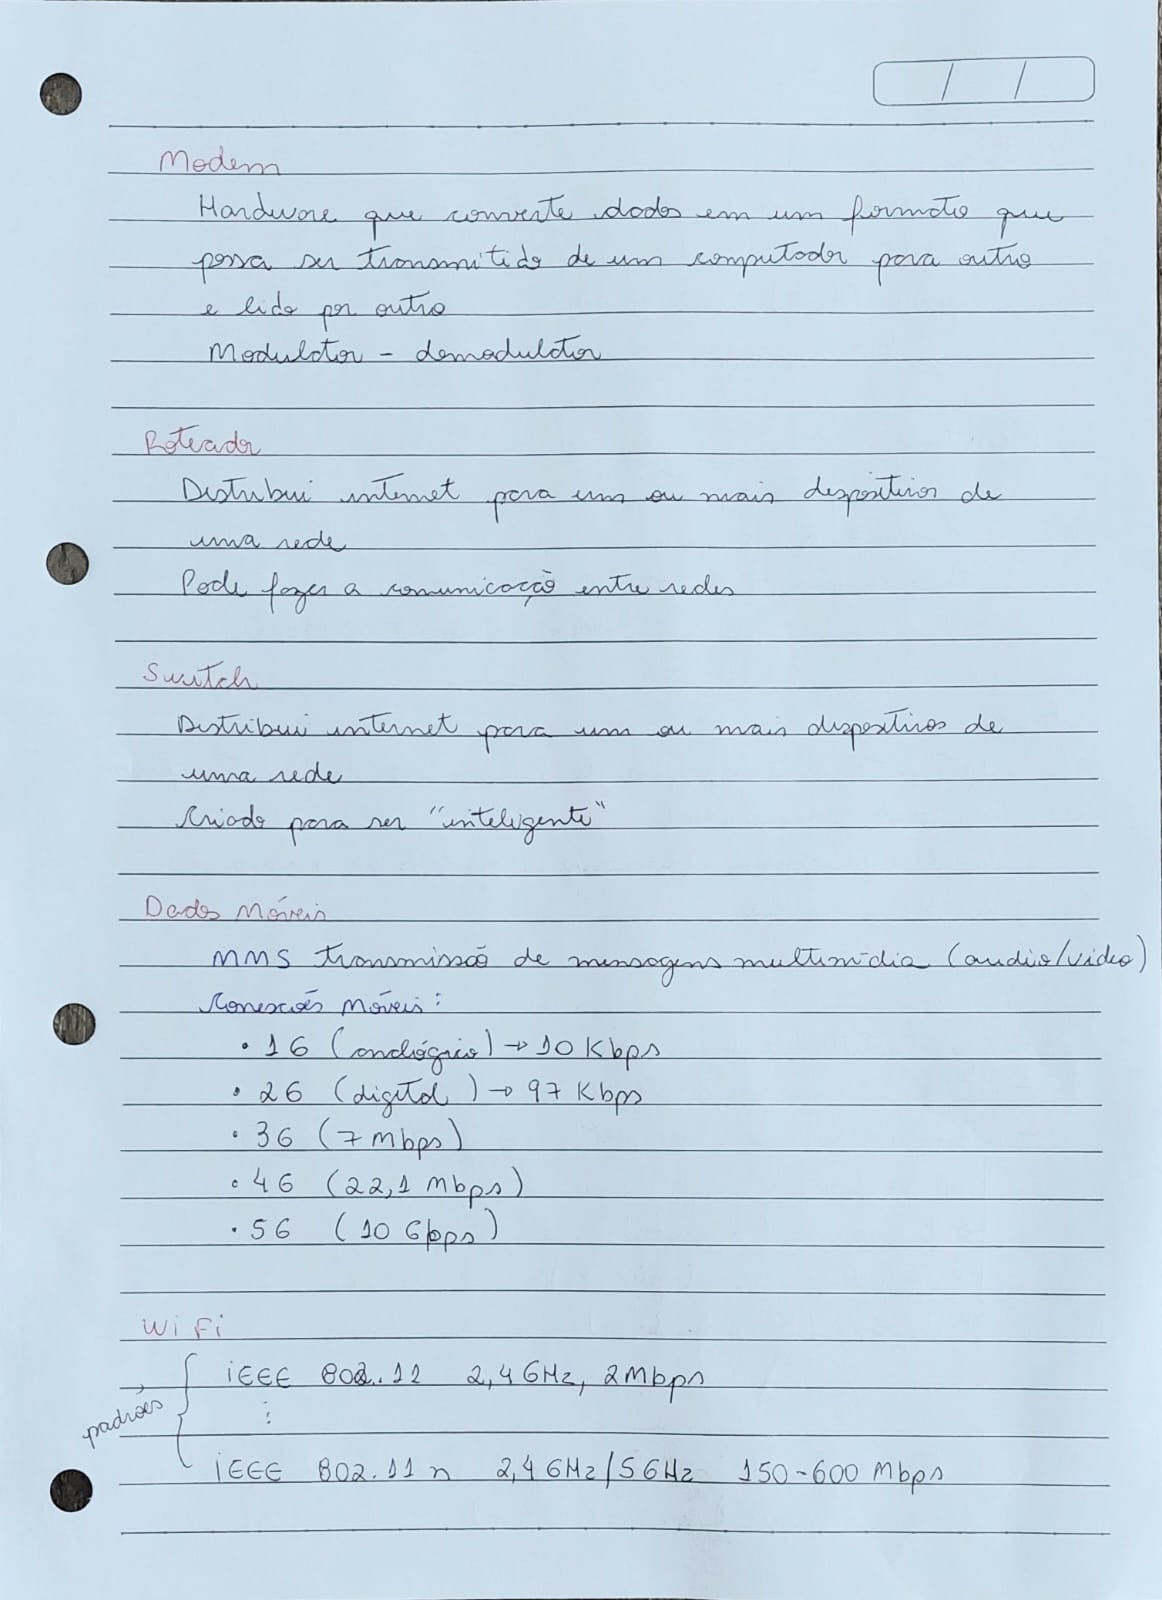 Modem
Hardware que converte dados em um formato que
possa ser transmitido de um computador para outro
e lido por outro
Modulator - demodulator
Roteador
Distribui internet para um ou mais dispositivos de
uma rede
Pode fazer a comunicação entre redes
Switch
Distribui internet para um ou mais dispositivos de
uma rede
Criado para ser "inteligente"
Dados Móveis
MMS transmissão de mensagens multimídia (audio/video)
Conexões Móveis:
• 1G (analógico) → 10 Kbps
• 2G (digital) → 97 Kbps
• 3G (7 Mbps)
• 4G (22,1 Mbps)
• 5G (10 Gbps)
WiFi
padrões
IEEE 802.11 2,4 GHz, 2Mbps
⋮
IEEE 802.11 n 2,4 GHz/5GHz 150-600 Mbps